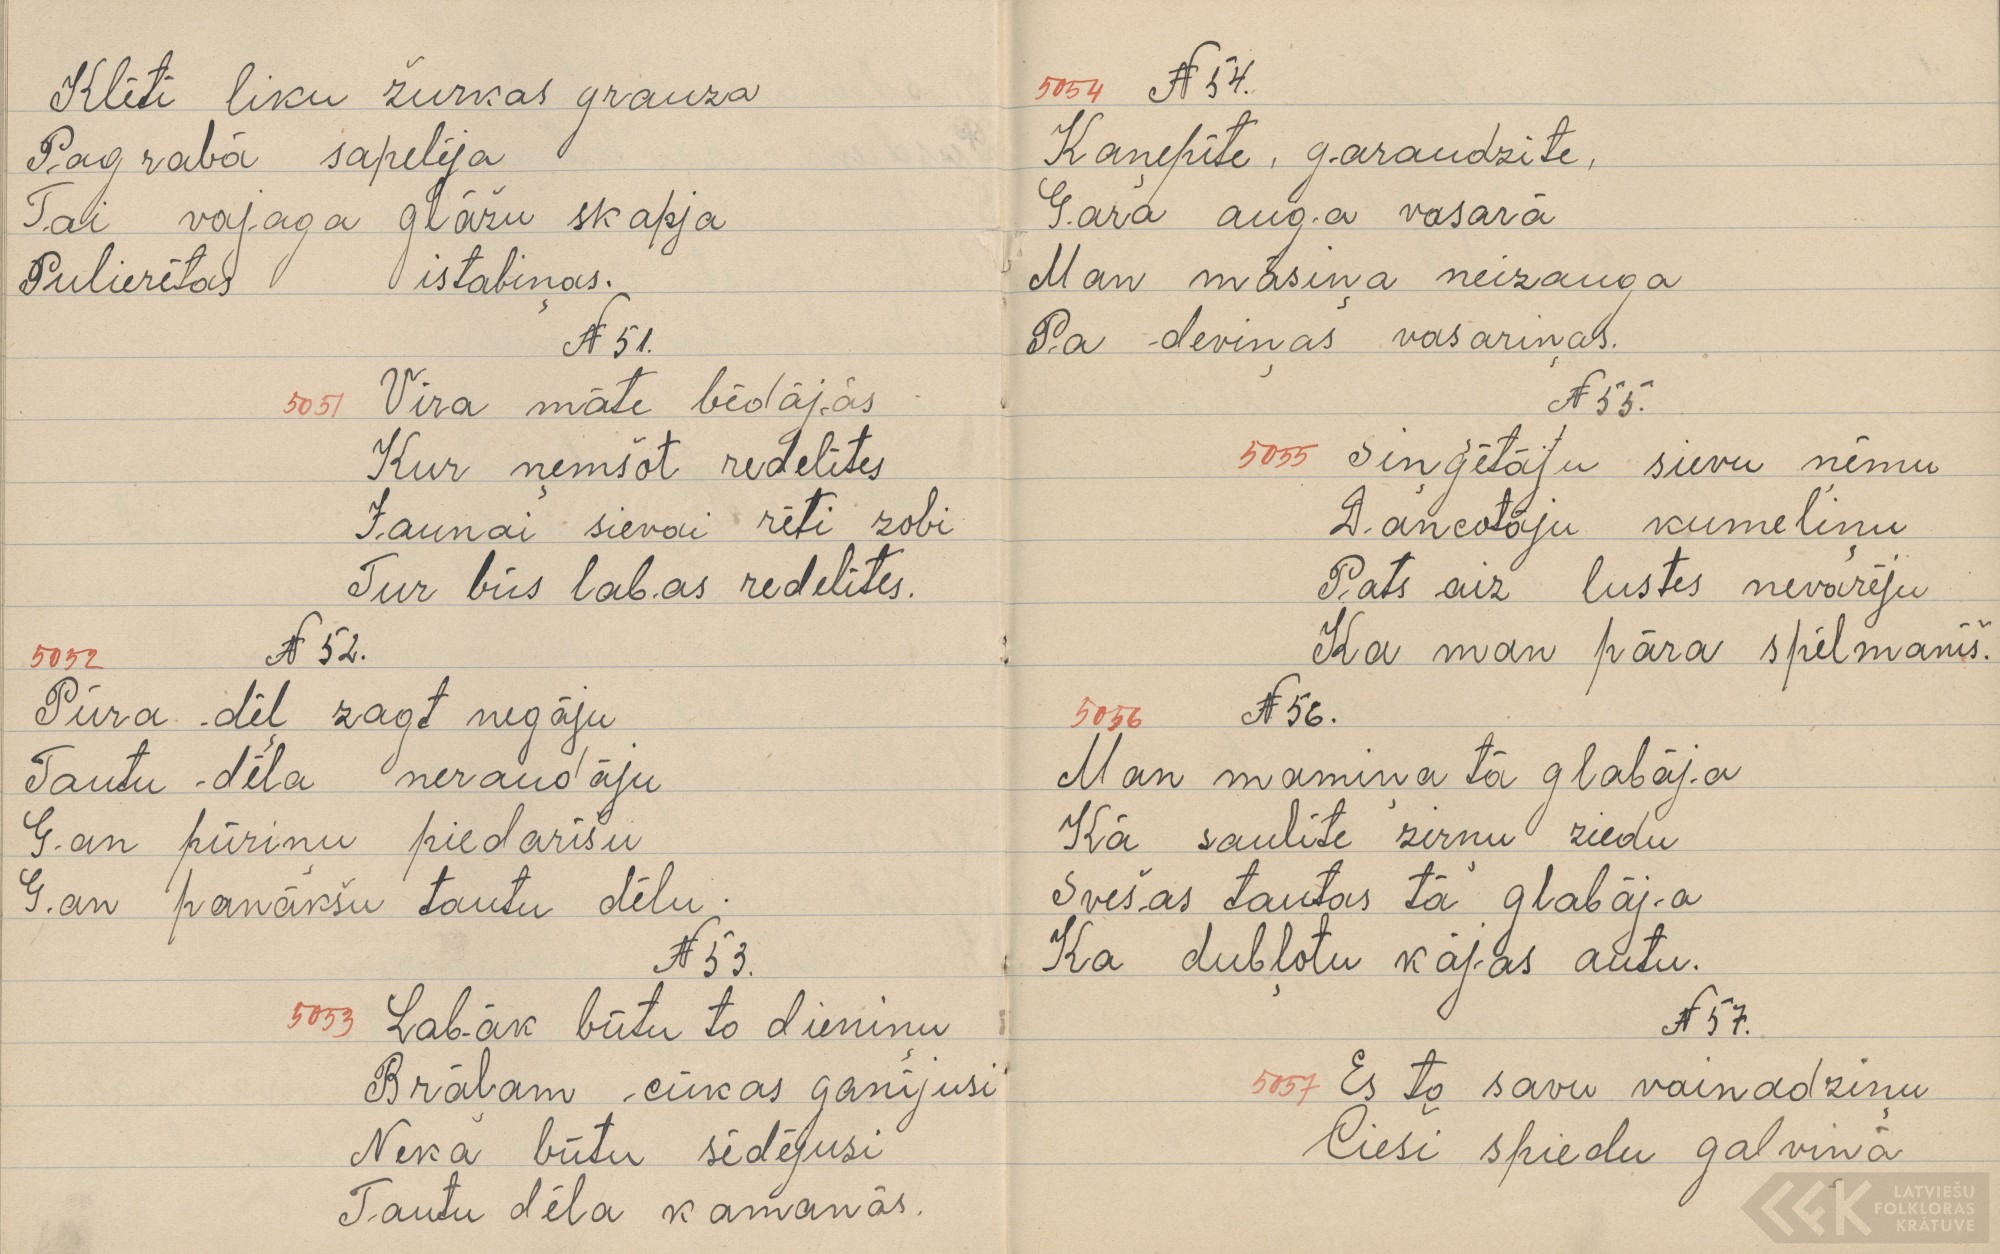 Klēti liku žurkas grauza
Pagrabā sapelēja
Tai vajaga glāžu skapja
Pulierētas istabiņas.
№ 51.
5051 Vīra māte bēdājās
Kur ņemšot redelītes
Jaunai sievai rēti zobi
Tur būs labas redelītes.
5052 № 52.
Pūra dēļ zagt negāju
Tautu dēla neraudāju
Gan pūriņu piedarīšu
Gan panākšu tautu dēlu.
№ 53.
5053 Labāk būtu to dieniņu
Brāļam cūkas ganījusi
Nekā būtu sēdējusi
Tautu dēla kamanās.
5054 № 54.
Kaņepīte, garaudzīte,
Gara auga vasarā
Man māsiņa neizauga
Pa deviņas vasariņas.
№ 55.
5055 Siņģētāju sievu ņēmu
Dancotāju kumeliņu
Pats aiz lustes nevarēju
Ka man pāra spēlmanīš.
5056 № 56.
Man mamiņa tā glabāja
Kā saulīte zirņu ziedu
Svešas tautas tā glabāja
Ka dubļotu kājas autu.
№ 57.
5057 Es to savu vainadziņu
Ciesi spiedu galviņā
LATVIEŠU
FOLKLORAS
KRĀTUVE